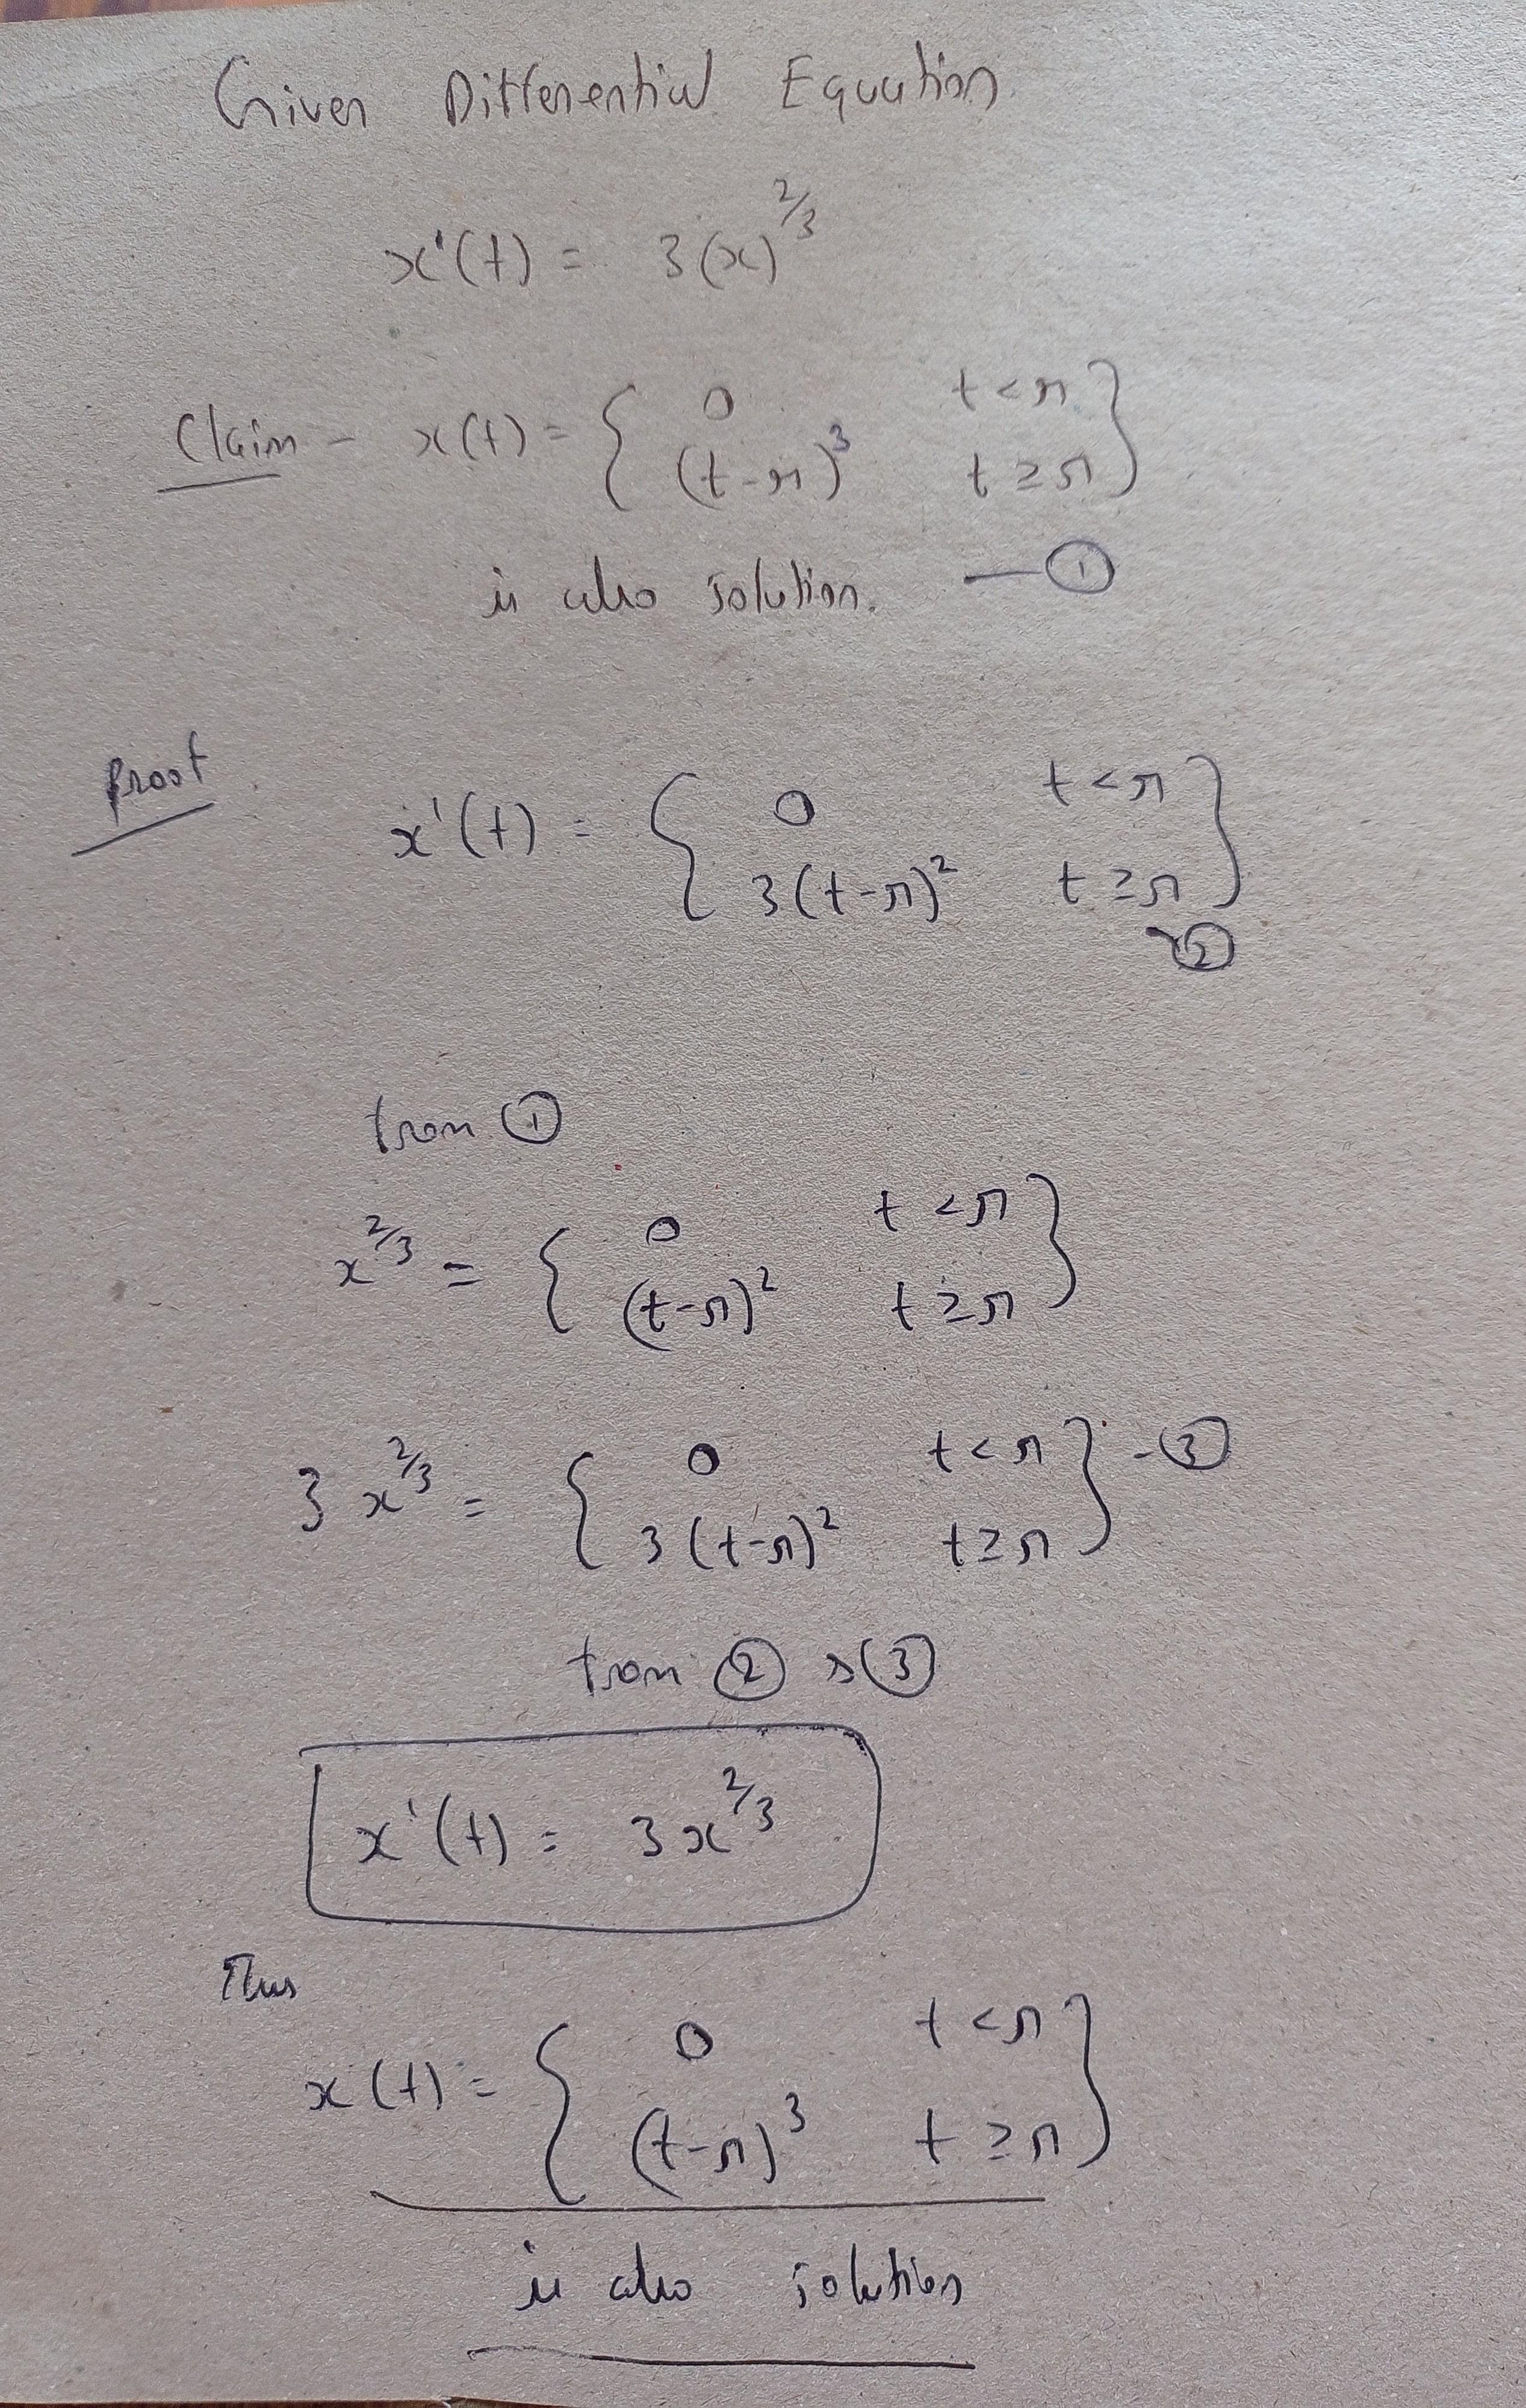 Given Differential Equation
x'(t) = 3(x)^{2/3}
Claim - x(t) = { 0 t < n
(t-n)^3 t ≥ n }
is also solution. — ①
Proof. x'(t) = { 0 t < n
3(t-n)^2 t ≥ n } ②
from ①
x^{2/3} = { 0 t < n
(t-n)^2 t ≥ n }
3 x^{2/3} = { 0 t < n
3(t-n)^2 t ≥ n } - ③
from ② & ③
x'(t) = 3x^{2/3}
Thus
x(t) = { 0 t < n
(t-n)^3 t ≥ n }
is also solution